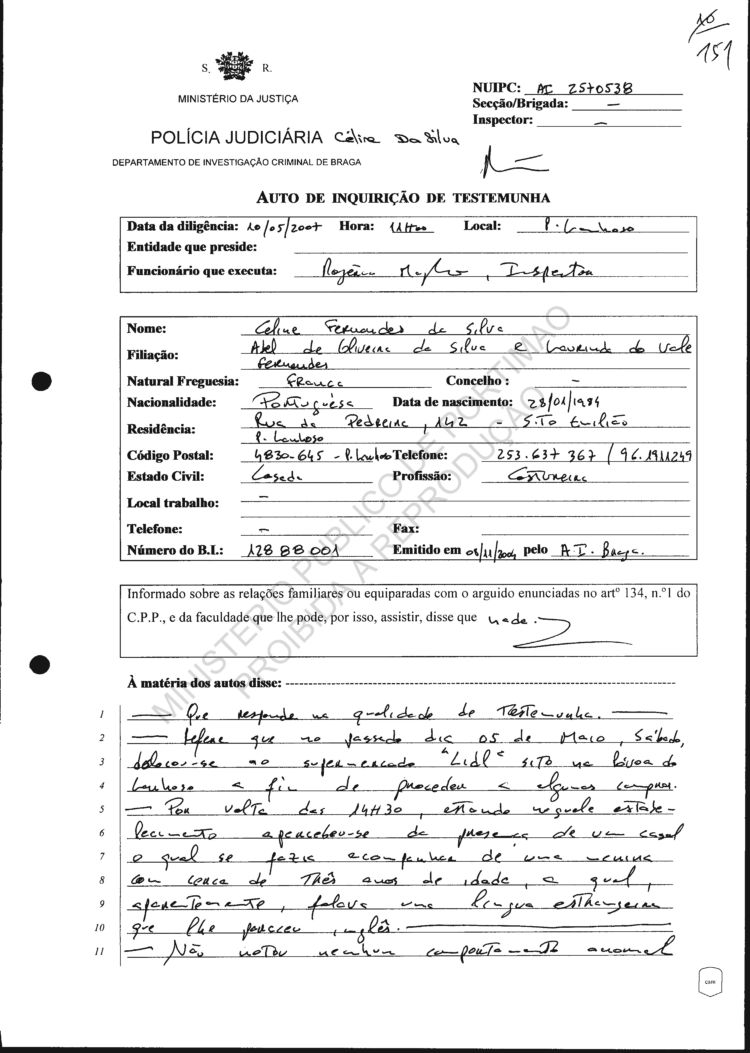 151
S. R.
MINISTÉRIO DA JUSTIÇA
NUIPC: AI 2570538
Secção/Brigada: –
Inspector: –
POLÍCIA JUDICIÁRIA Céline Da Silva
DEPARTAMENTO DE INVESTIGAÇÃO CRIMINAL DE BRAGA
AUTO DE INQUIRIÇÃO DE TESTEMUNHA
Data da diligência: 10/05/2007 Hora: 11H00 Local: P. Lanhoso
Entidade que preside:
Funcionário que executa: Rogério , Inspector
Nome: Celine Fernandes da Silva
Filiação: Abel de Oliveira da Silva e Laurinda do Vale
Fernandes
Natural Freguesia: França Concelho : –
Nacionalidade: Portuguesa Data de nascimento: 28/01/1984
Residência: Rua da Pedreira, 142 – S.to Emilião
P. Lanhoso
Código Postal: 4830-645 - P. Lanhoso Telefone: 253.637 367 / 96.1911249
Estado Civil: Casada Profissão: Costureira
Local trabalho: –
Telefone: – Fax:
Número do B.I.: 12888001 Emitido em 05/11/2004 pelo A.I. Braga.
Informado sobre as relações familiares ou equiparadas com o arguido enunciadas no artº 134, n.º1 do
C.P.P., e da faculdade que lhe pode, por isso, assistir, disse que nada.
À matéria dos autos disse: ---
1 — Que responde na qualidade de Testemunha. —
2 — Refere que no passado dia 05 de Maio, Sábado,
3 deslocou-se ao supermercado "Lidl" sito na Póvoa do
4 Lanhoso a fim de proceder a algumas compras.
5 — Por volta das 14H30, estando naquele estabe-
6 lecimento apercebeu-se da presença de um casal
7 o qual se fazia acompanhar de uma menina
8 com cerca de Três anos de idade, a qual,
9 aparentemente, falava uma língua estrangeira
10 que lhe pareceu inglês. —
11 — Não notou nenhum comportamento anormal
MINISTÉRIO PÚBLICO DE PORTIMÃO
PROIBIDA A REPRODUÇÃO